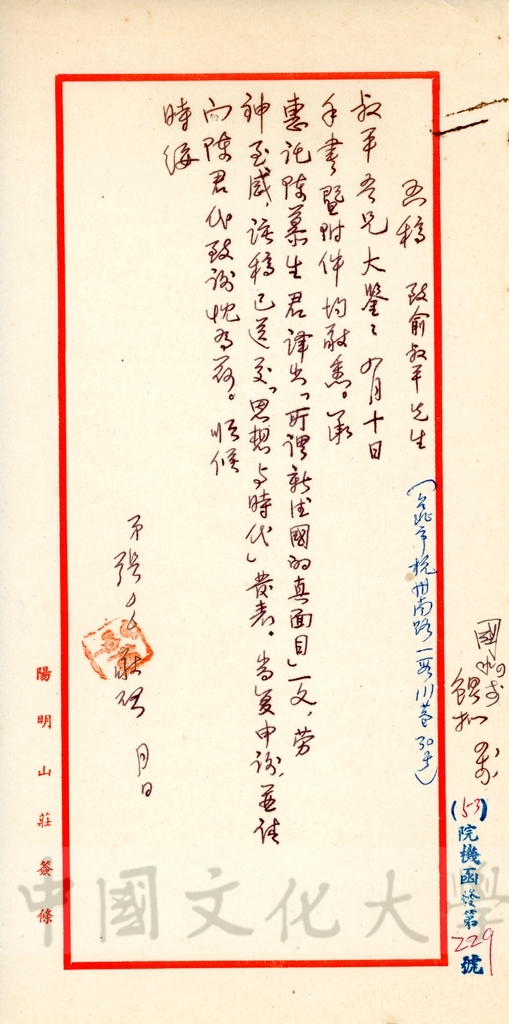 函稿 致俞叔平先生
(台北市杭州南路一段
叔平吾兄大鑒：九月十日
手書暨附件均敬悉。承
惠託陳慕生君譯出「所謂新德國的真面目」一文，勞
神至感，該稿已送交「思想與時代」發表。耑复申謝，並請
向陳君代致謝忱為荷。順候
時綏
弟張 敬啟 月 日
陽明山莊簽條
(53)院機函發第229號
中國文化大學